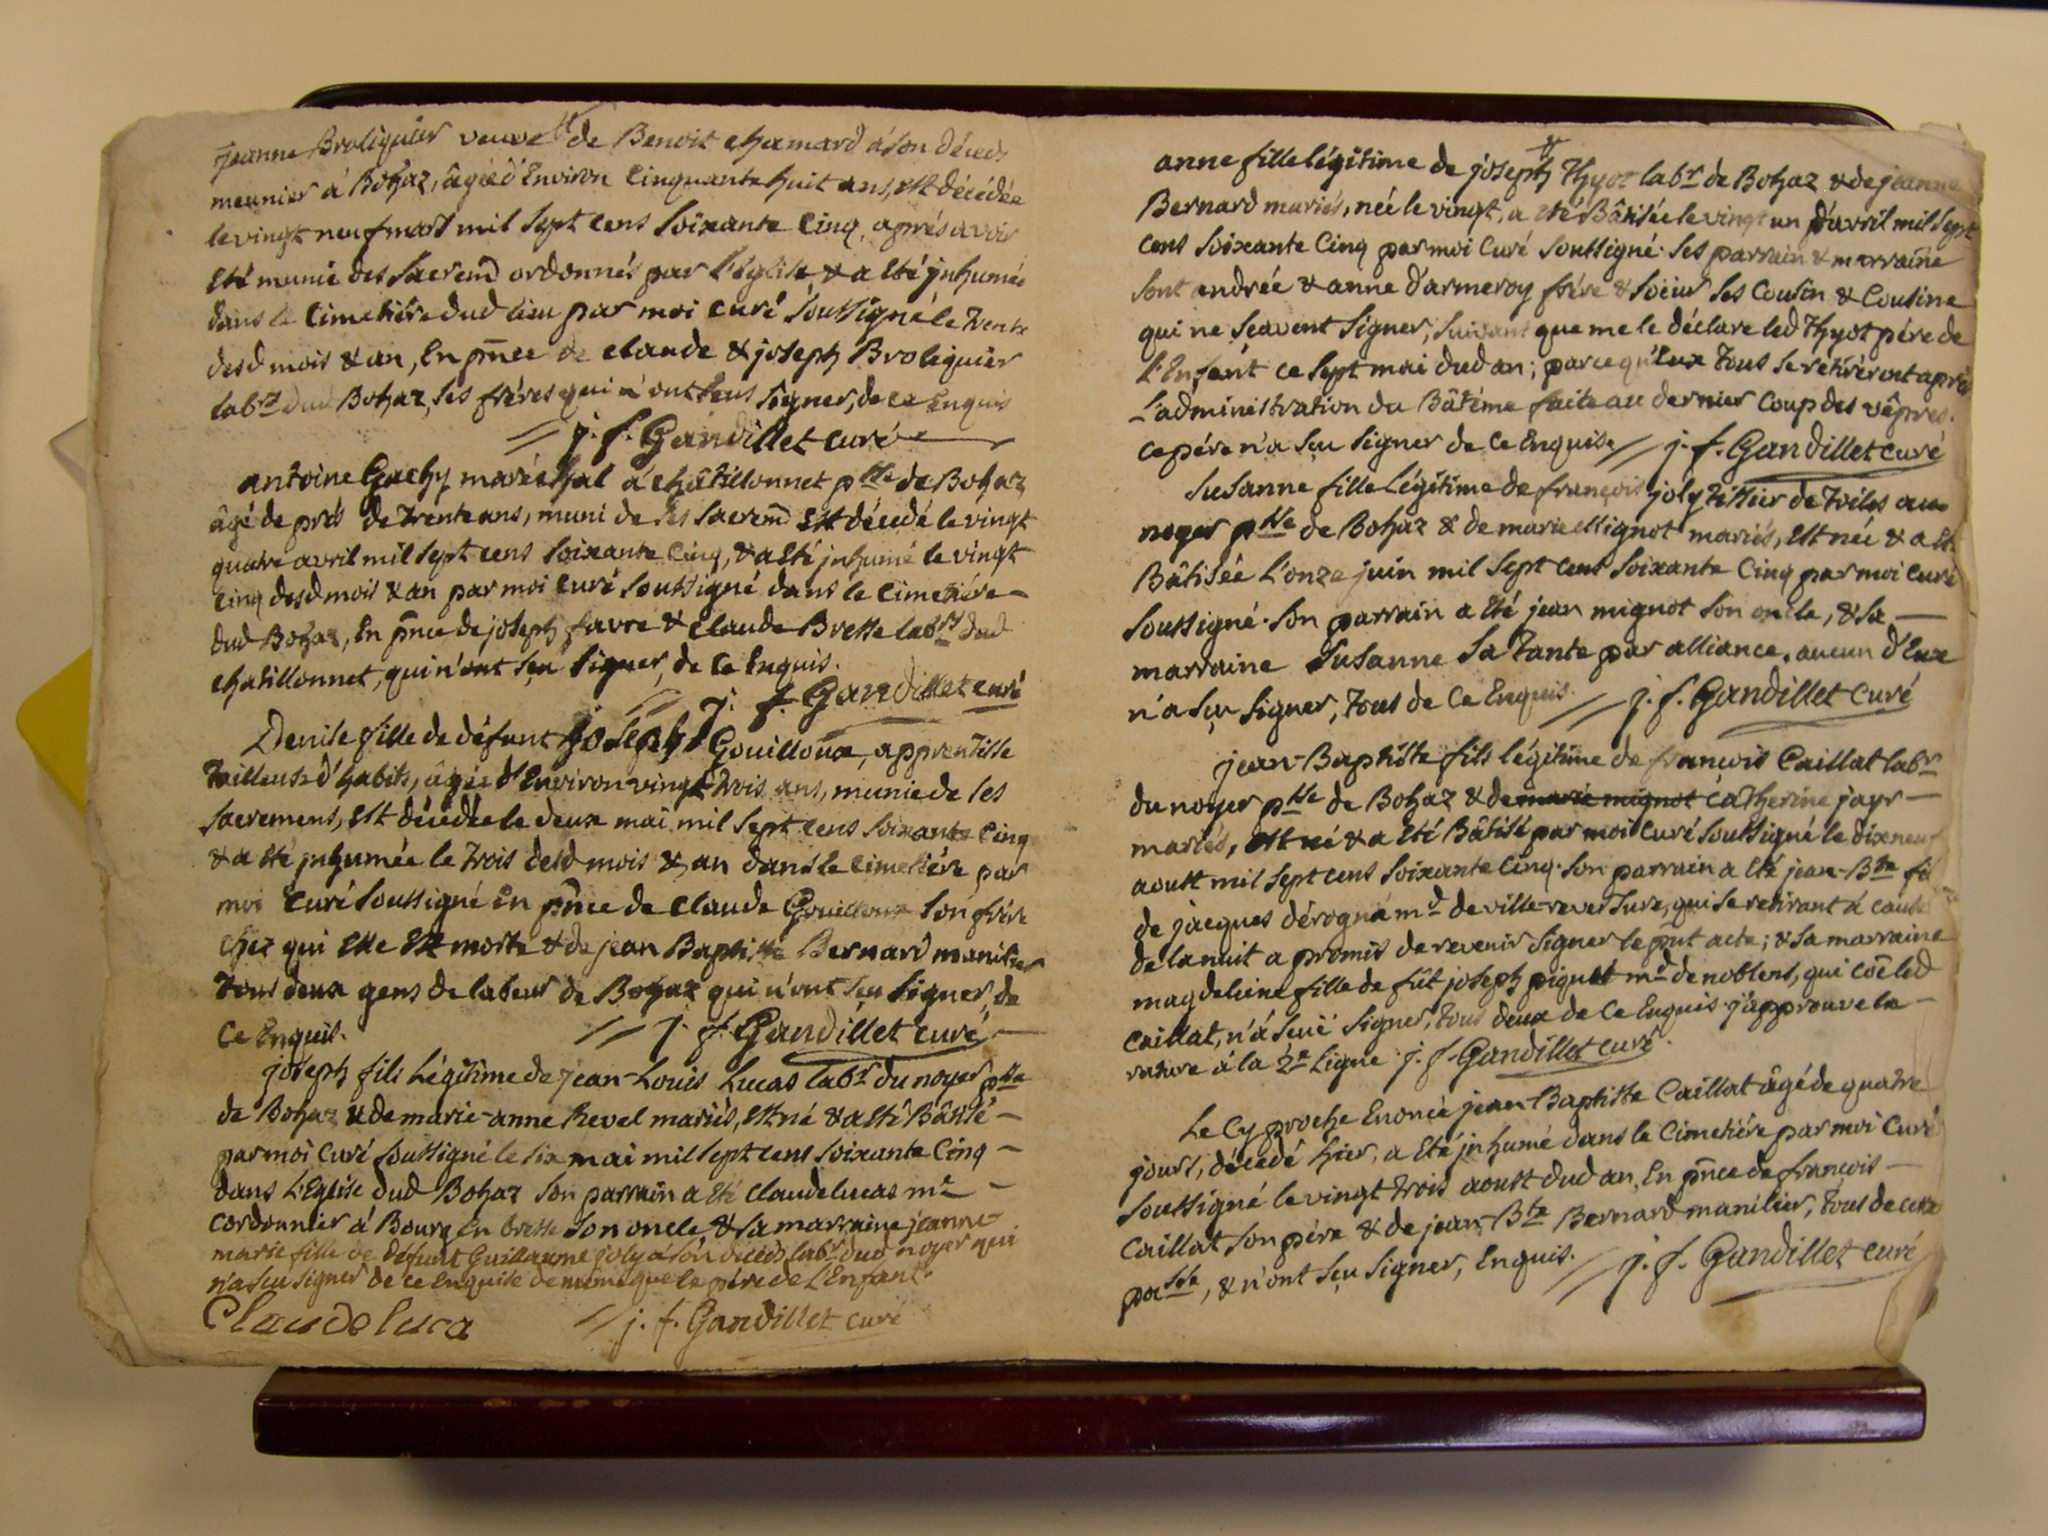 jeanne Broliquier veuve de Benoit chamard à son décès
meunier à Bohaz, âgée d'Environ Cinquante huit ans, est décédée
le vingt neuf mars mil Sept cens Soixante Cinq, après avoir
Eté munie des Sacrem ordonnés par L'Eglise & a Eté jnhumée
dans le Cimetière dud lieu par moi Curé Soussigné le trente
desd mois & an, En pnce de claude & joseph Broliquier
labrs dud Bohaz, ses frères qui n'ont sçus signer, de ce Enquis
// j. f. Gandillet curé
antoine Gachy maréchal à châtillonnet psse de Bohaz
âgé de près de trente ans, muni de ses Sacrem est décédé le vingt
quatre avril mil Sept cens Soixante Cinq, & a Eté jnhumé le vingt
Cinq desd mois & an par moi Curé Soussigné dans le Cimetière –
dud Bohaz, En pnce de joseph favre & claude Bresse labrs dud
chatillonnet, qui n'ont sçu signer, de ce Enquis.
// j. f. Gandillet curé
Denise fille de défunt joseph Gouilloux, apprentisse
tailleuse d'habits, âgée d'Environ vingt trois ans, munie de ses
Sacremens, est décédée le deux mai mil Sept cens Soixante Cinq
& a été jnhumée le trois desd mois & an dans le cimetière par
moi Curé Soussigné En pnce de Claude Gouilloux son frère
chez qui Elle Est morte & de jean Baptiste Bernard manilier
tous deux gens de labeur de Bohaz qui n'ont sçu signer, de
Ce Enquis. // j. f. Gandillet curé –
joseph fils Légitime de jean-Louis Lucas labr du noyer psse
de Bohaz & de marie-anne Revel mariés, est né & a Eté Bâtisé –
par moi Curé soussigné le six mai mil sept cens soixante Cinq –
dans L'Eglise dud Bohaz son parrain a Eté claude lucas me –
cordonnier à Bourg En bresse son oncle, & sa marraine jeanne
marie fille de défunt Guillaume joly à son décès labr dud noyer qui
n'a sçu signer de ce Enquise de même que le père de L'Enfant.
Claude luca // j. f. Gandillet curé
anne fille légitime de joseph Thyot labr de Bohaz & de jeanne
Bernard mariés, née le vingt, a été Bâtisée le vingt un d'avril mil Sept
cens Soixante Cinq par moi Curé Soussigné. Ses parrain & marraine
sont andrée & anne d'armeroy frère & soeur ses Cousin & Cousine
qui ne sçavent signer, suivant que me le déclare led Thyot père de
L'Enfant ce sept mai dud an; parce qu'Eux tous se retirèrent après
L'administration du Bâtême faite au dernier coup des vêpres.
Ce père n'a sçu signer de Ce Enquise // j. f. Gandillet curé
Susanne fille légitime de françois joly tissier de toiles au
noyer psse de Bohaz & de marie Mignot mariés, est née & a été
Bâtisée L'onze juin mil Sept cens Soixante Cinq par moi Curé
Soussigné. Son parrain a Eté jean mignot son oncle, & sa –
marraine Susanne sa tante par alliance. aucun d'Eux
n'a sçu signer, tous de Ce Enquis. // j. f. Gandillet Curé
jean-Baptiste fils légitime de francois Caillat labr
du noyer psse de Bohaz & de marie mignot Catherine jayr –
mariés, est né & a Eté Bâtisé par moi Curé soussigné le dixneuf
aoust mil sept cens soixante Cinq. son parrain a Eté jean-Bte fils
de jacques dérognà md de ville-reversure, qui se retirant à cause
de la nuit a promis de revenir signer le pnt acte; & sa marraine
magdeleine fille de fût joseph piquet md de noblens, qui coe led
Caillat, n'a sçuë signer, tous deux de Ce Enquis. j'approuve la –
rature à la 2e Ligne. j. f. Gandillet curé.
Le Cy proche Enoncé jean-Baptiste Caillat âgé de quatre
jours, décédé hier, a Eté jnhumé dans le Cimetière par moi Curé
Soussigné le vingt trois aoust dud an, En pnce de françois –
Caillat son père & de jean-Bte Bernard manilier, tous de cette
paisse, & n'ont sçu signer, Enquis. // j. f. Gandillet curé